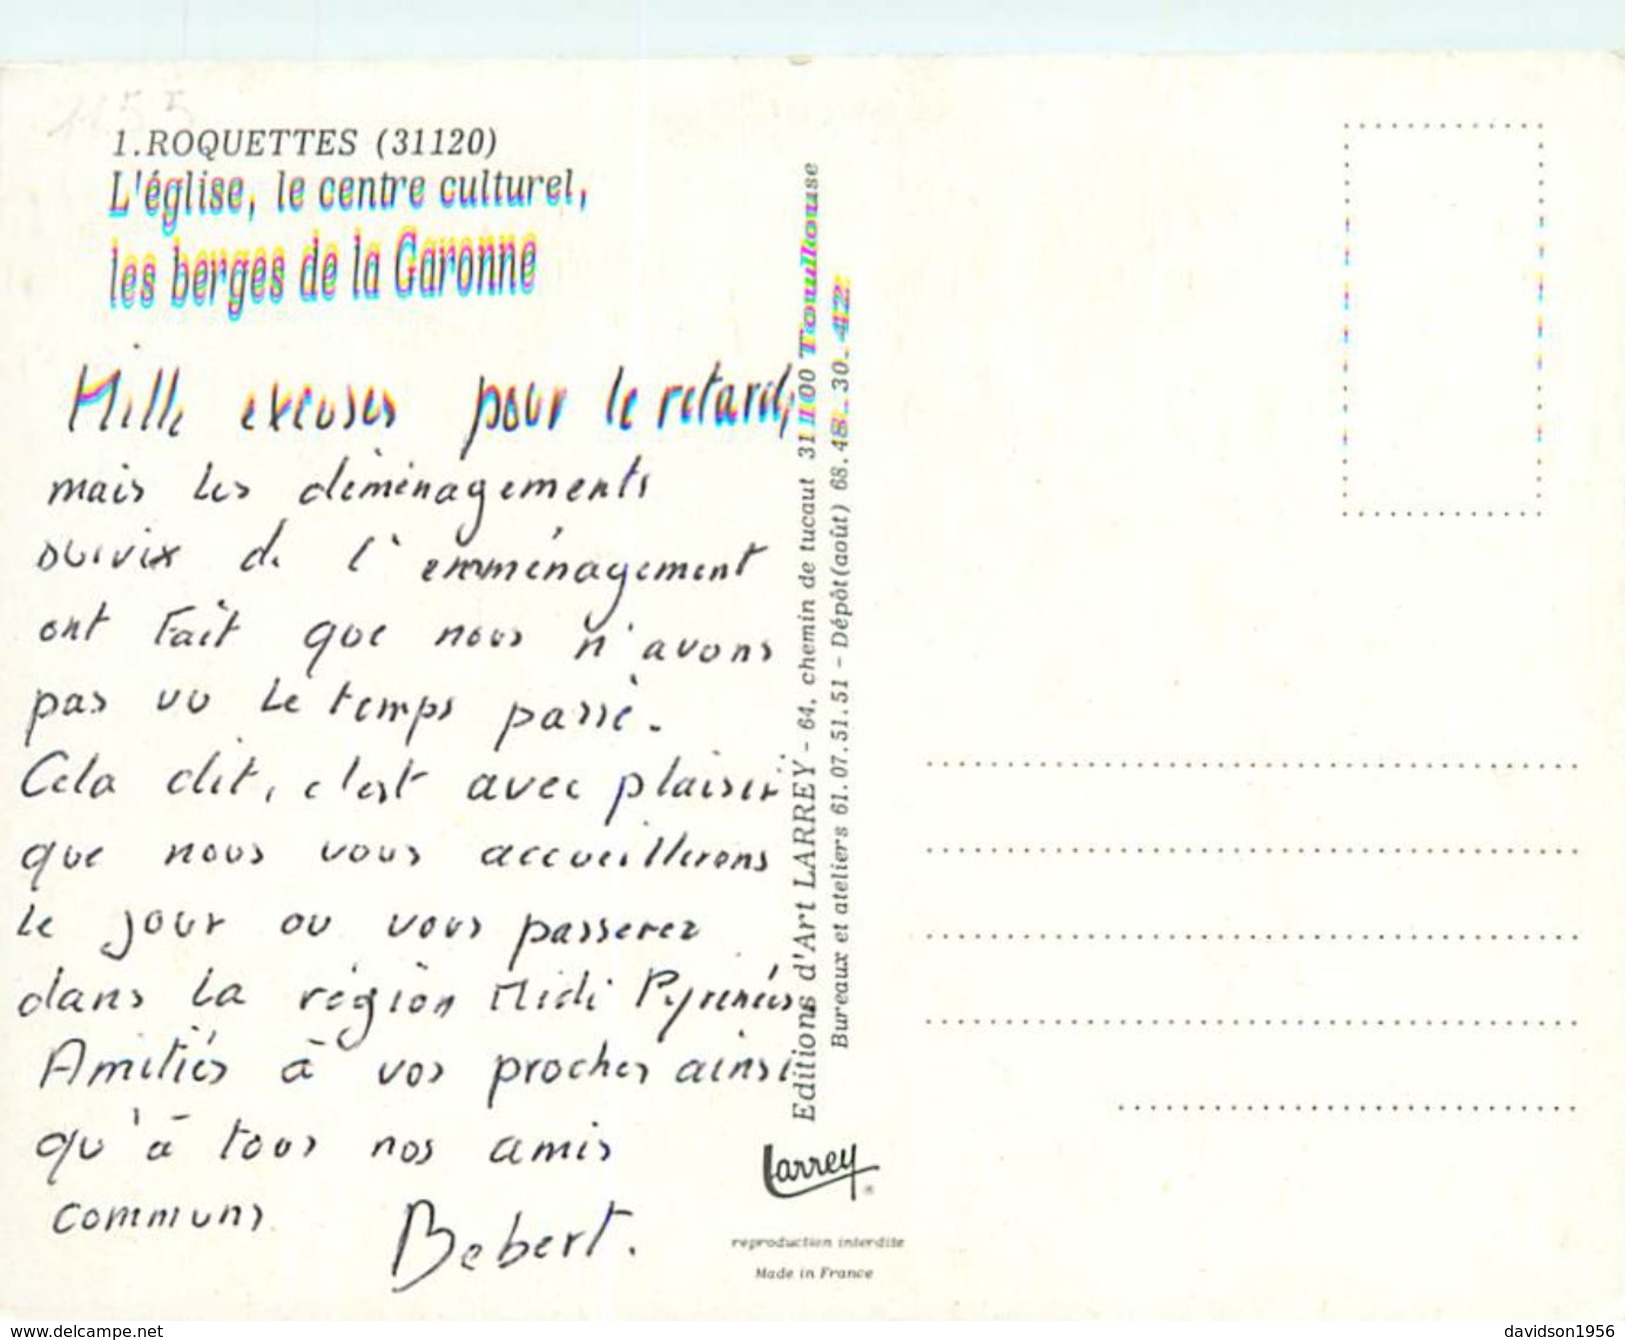 1.ROQUETTES (31120)
L'église, le centre culturel,
les berges de la Garonne
Mille excuses pour le retard,
mais les déménagements
suivix de l'emménagement
ont fait que nous n'avons
pas vu le temps passé.
Cela dit, c'est avec plaisir
que nous vous accueillerons
le jour ou vous passerez
dans la région Midi Pyrénées
Amitiés à vos proches ainsi
qu'à tous nos amis
communs
Bebert.
Editions d'Art LARREY - 64, chemin de tucaut 31100 Toulouse
Bureaux et ateliers 61.07.51.51 - Dépôt(août) 68.48.30.42
Larrey
reproduction interdite
Made in France
www.delcampe.net
davidson1956